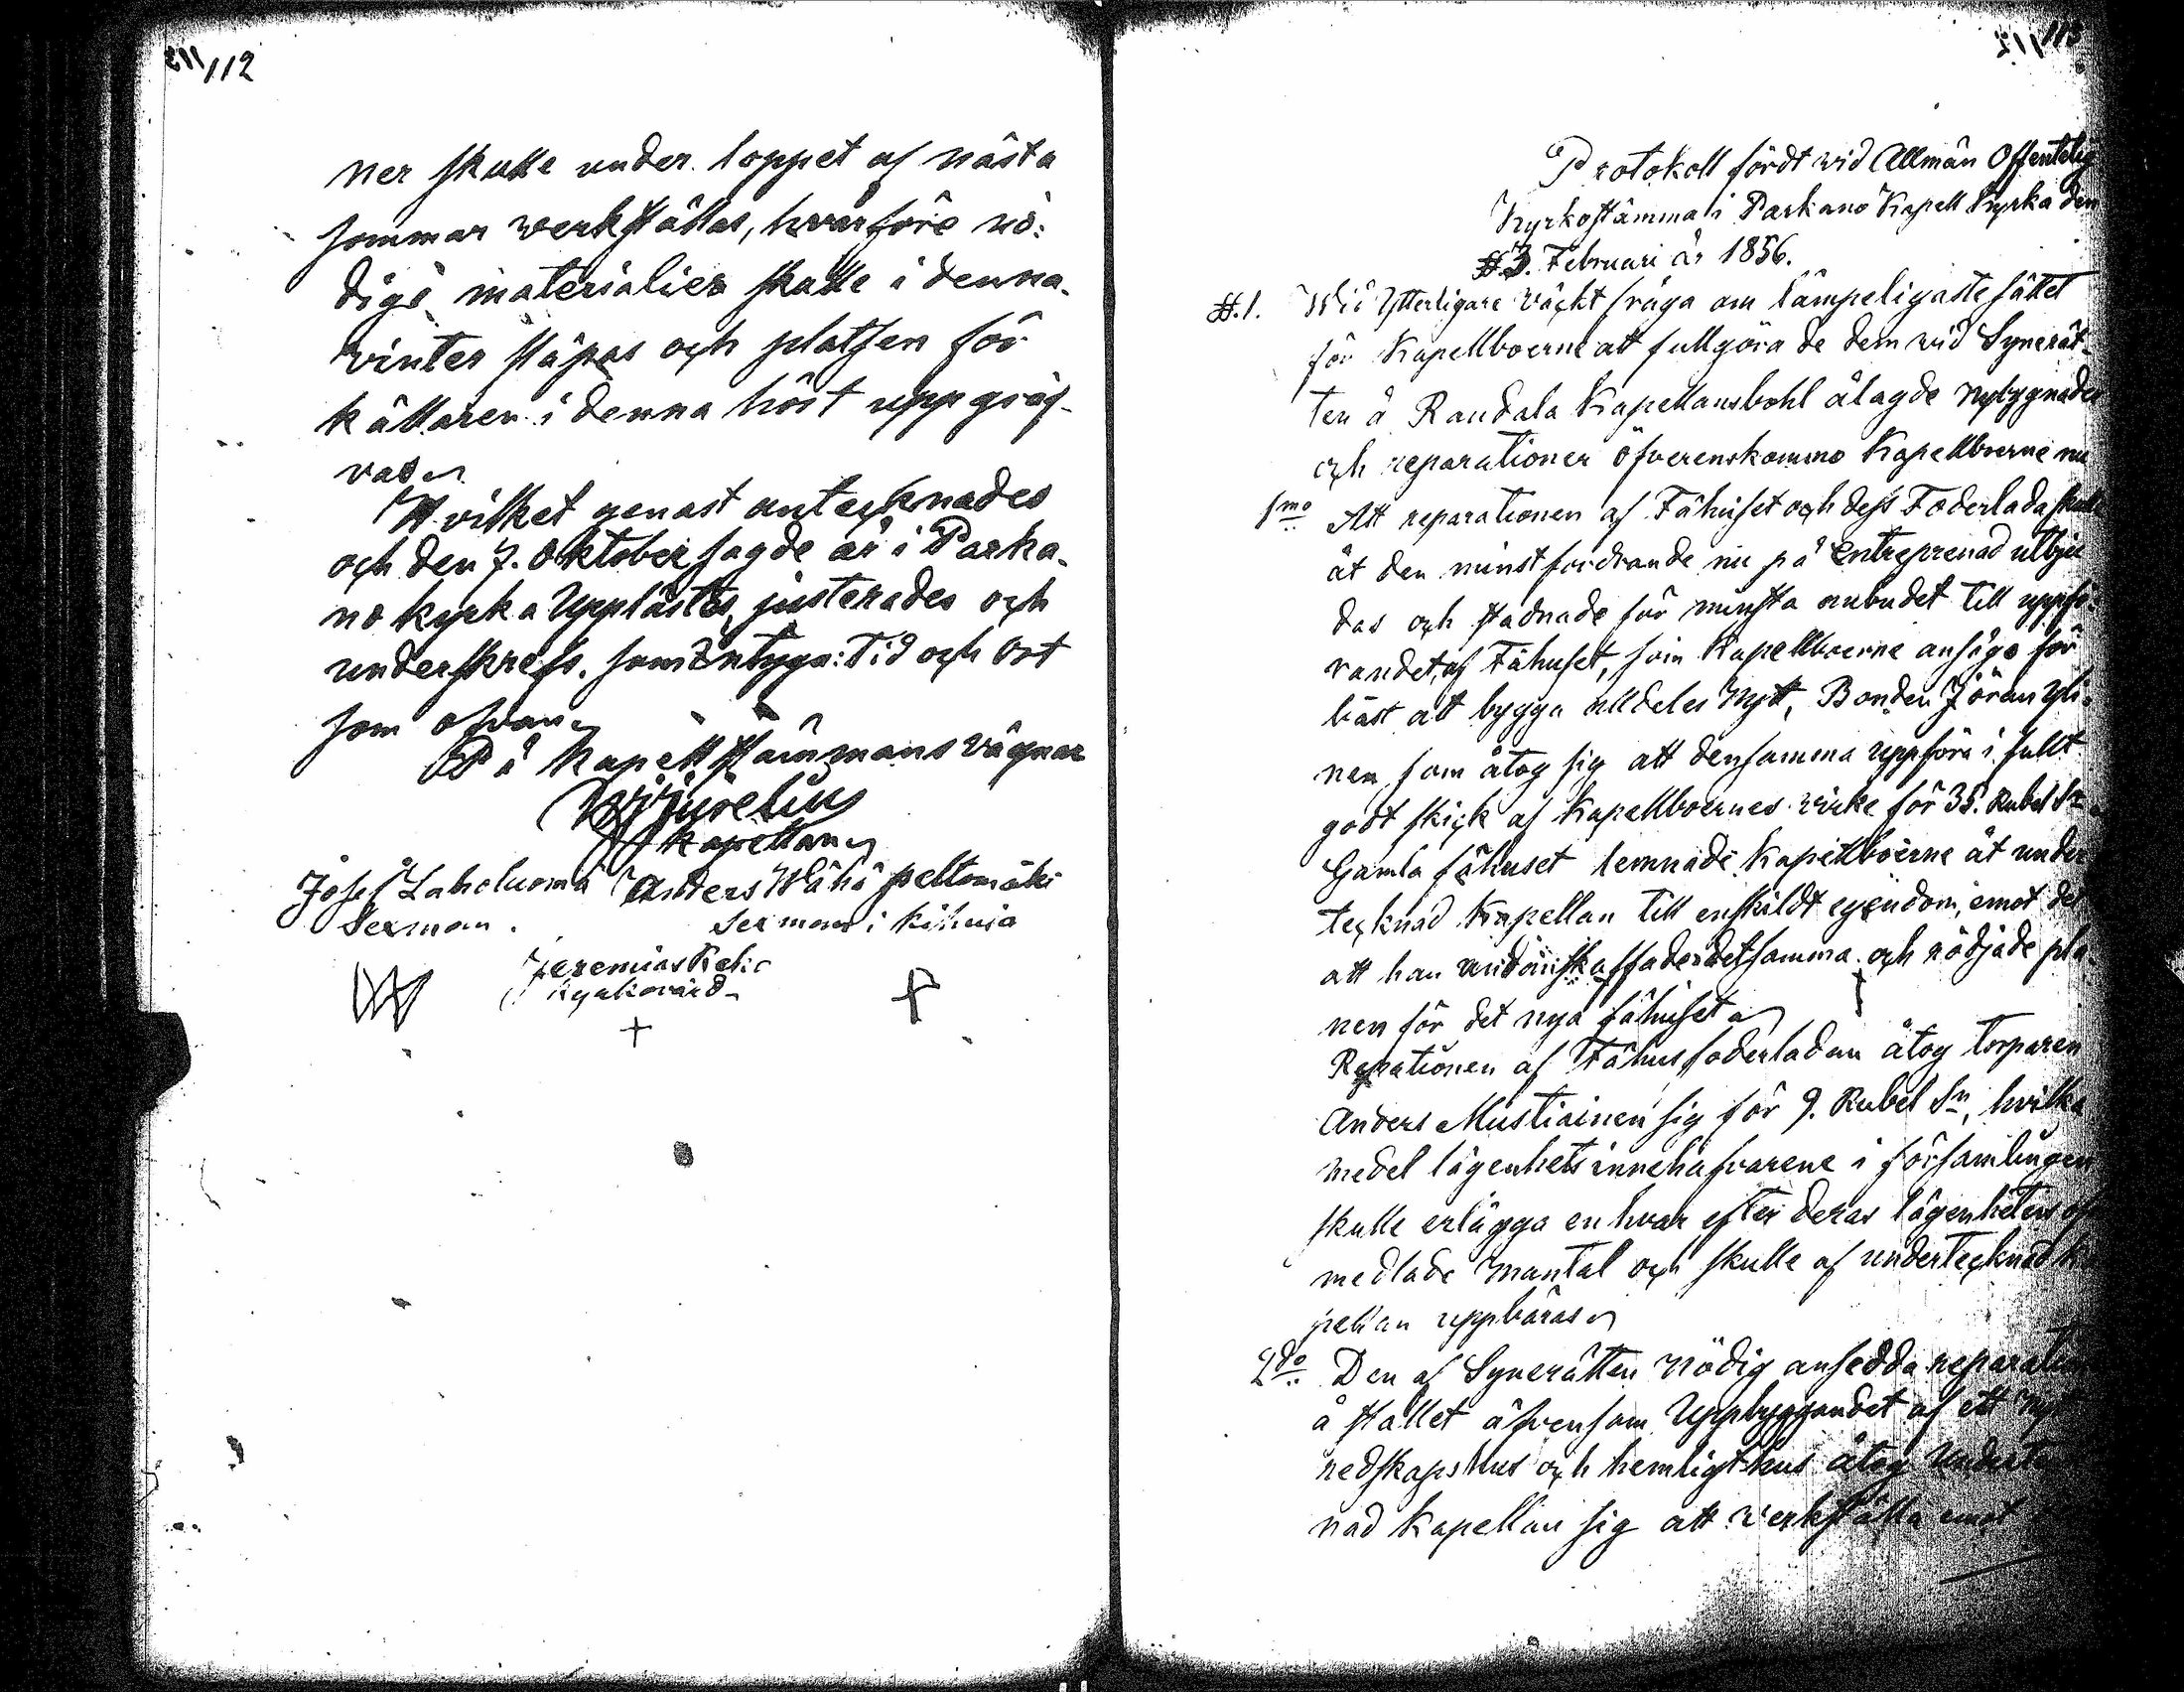 112
ner skulle under loppet af nästa
sommar werkställas, hvarföre nö:
dige materialier skulle i denna
vinter släpas och platsen för
källaren i denna höst uppgräf-
vas.
Hvilket genast antecknades
och den 7. Oktober sagde år i Parka-
no kyrka Upplästes, justerades och
underskrefs, som intyga: Tid och Ort
som ofvan
På Kapellstämmans vägnar
Kapellan
Josef Laholuoma Anders Wähä peltomäki
Sexman. Sexman i Kihniä
Jeremias
Kyrkovärd
113
Protokoll fördt wid Allmän Offentelig
Kyrkostämma i Parkano Kapell Kyrka den
3. Februari år 1856.
§.1. Wid Ytterligare väckt fråga om lämpeligaste sättet
för Kapellboerne att fullgöra de dem wid Synerät-
ten å Raudala Kapellansbohl ålagde nybygnader
och reparationer öfverenskommo Kapellboerne nu
1mo Att reparationen af Fähuset och dess Foderlada skulle
åt den minst fordrande nu på entreprenad utbju-
das och stadnade för minsta anbudet till uppfö-
randet af Fähuset, som Kapellboerne ansågo för
bäst att bygga alldeles Nytt, Bonden Jöran Yli-
nen, som åtog sig att densamma uppföra i fullt
godt skick af Kapellboernes virke för 35. Rubel Sr
Gamla fähuset lemnade Kapellboerne åt under
tecknad Kapellan till enskildt egendom, emot det
att han undanskaffade detsamma och rödjade pla-
nen för det nya fähuset
Reparationen af Fähusfoderladan åtog torparen
Anders Mustiainen sig för 9. Rubel Sr, hvilka
medel lägenhets innehafvarene i församlingen
skulle erlägga en hvar efter deras lägenheters
medlade mantal och skulle af undertecknad Ka
pellan uppbäras
2do Den af Synerätten Nödig ansedda reparation
å stallet äfvensom Uppbyggandet af ett nytt
redskapshus och hemligthus åtog Underteck
nad Kapellan sig att werkställa emot